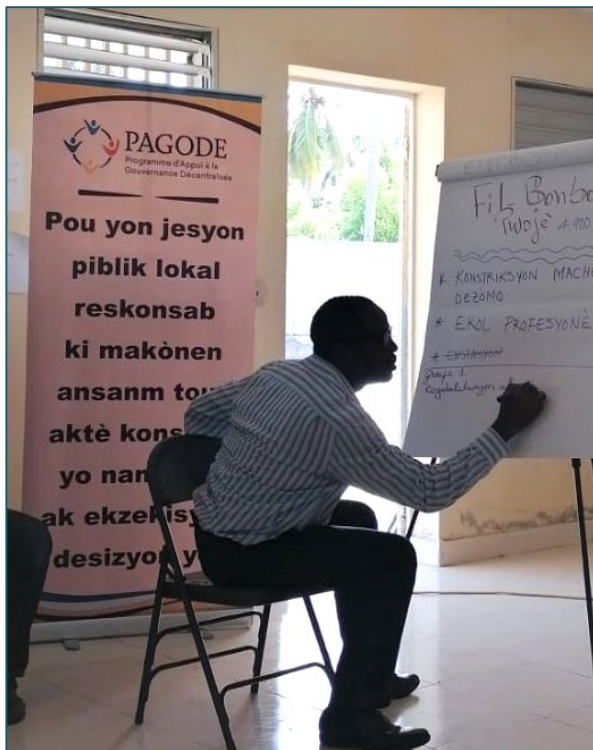 PAGODE
Programme d'Appui à la
Gouvernance Décentralisée
Pou yon jesyon
piblik lokal
reskonsab
ki makònen
ansanm tou
aktè kons
yo nan
ak ekzekisy
desizyon y
Fil Bonbo
Pwojè 4.900
* KONSTRIKSYON MACHE
DEZOMO
* EKOL PROFESYONÈ
Group 1